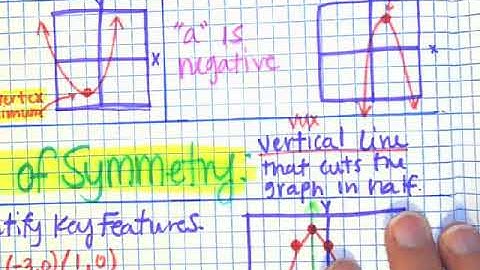 "a" is
negative
x
x
vertex
vux
of Symmetry:
vertical line
that cuts the
graph in half.
Key Features.
Y
(-3,0) (1,0)